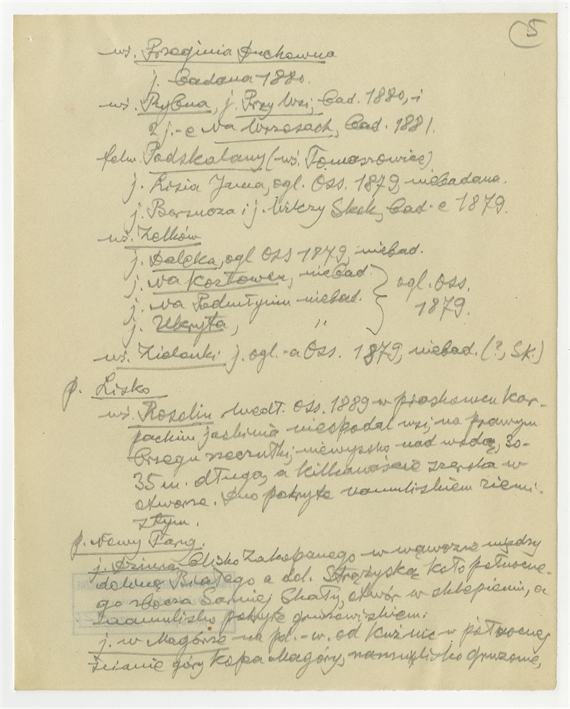 5
wś. Przeginia Duchowna
j. badana 1880.
wś. Rybna, j. Przy Wsi, bad. 1880, i
2 j.-e Na Wrzosach, bad. 1881.
folw. Podskalany (wś. Tomaszowice)
j. Lisia Jama, ogl. Oss. 1879 niebadana.
j. Borsucza i j. Wilczy Skok, bad-e 1879.
wś. Zelków
j. Daleka, ogl Oss 1879, niebad.
j. Na Kozłowcu, niebad
j. Na Podmłynim niebad. ogl. Oss.
j. Ukryta, " 1879.
wś. Zielonki j. ogl.-a Oss. 1879, niebad. (?, Sk.)
p. Lisko
wś. Rosolin wedł. Oss. 1889 w piaskowcu kar-
packim jaskinia niespodal wsi, na prawym
brzegu rzeczułki, niewysoko nad wodą, 30-
35 m. długa, a kilkanaście szeroka w
otworze. Dno pokryte namuliskiem ziemi-
stym.
p. Nowy Targ.
j. Dziura, blisko Zakopanego w wąwozie między
doliną Białego a dol. Strążyską, koło północne-
go zbocza Sarniej Skały, otwór w sklepieniu, a
namulisko pokryte gruzowiskiem.
j. w Magórze na pd.-w. od Kuźnic w północnej
ścianie góry Kopa Magóry, namulisko gruzowe,